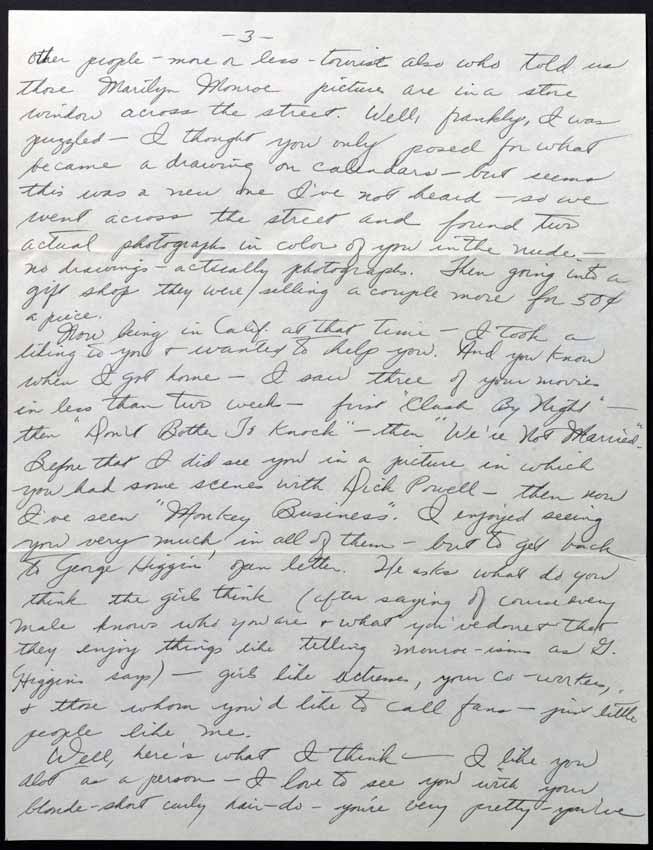 -3-
other people - more or less - tourist also who told us
those Marilyn Monroe pictures are in a store
window across the street. Well, frankly, I was
puzzled - I thought you only posed for what
became a drawing on calendars - but seems
this was a new one I've not heard - so we
went across the street and found two
actual photographs in color of you in the nude. -
no drawings - actually photographs. Then going into a
gift shop they were selling a couple more for 50¢
a piece.
Now being in Calif. at that time - I took a
liking to you & wanted to help you. And you know
when I got home - I saw three of your movies
in less than two week - first "Clash By Night" -
then "Don't Bother To Knock" - then "We're Not Married".
Before that I did see you in a picture in which
you had some scenes with Dick Powell - then now
I've seen "Monkey Business". I enjoyed seeing
you very much in all of them - but to get back
to George Higgin' open letter. He asks what do you
think the girls think (after saying of course every
male knows who you are & what you've done & that
they enjoy things like telling monroe-isms as G.
Higgins says) - girls like actresses, your co-workers,
& those whom you'd like to call fans - just little
people like me.
Well, here's what I think - I like you
alot as a person - I love to see you with your
blonde-short curly hair-do - you're very pretty - you've